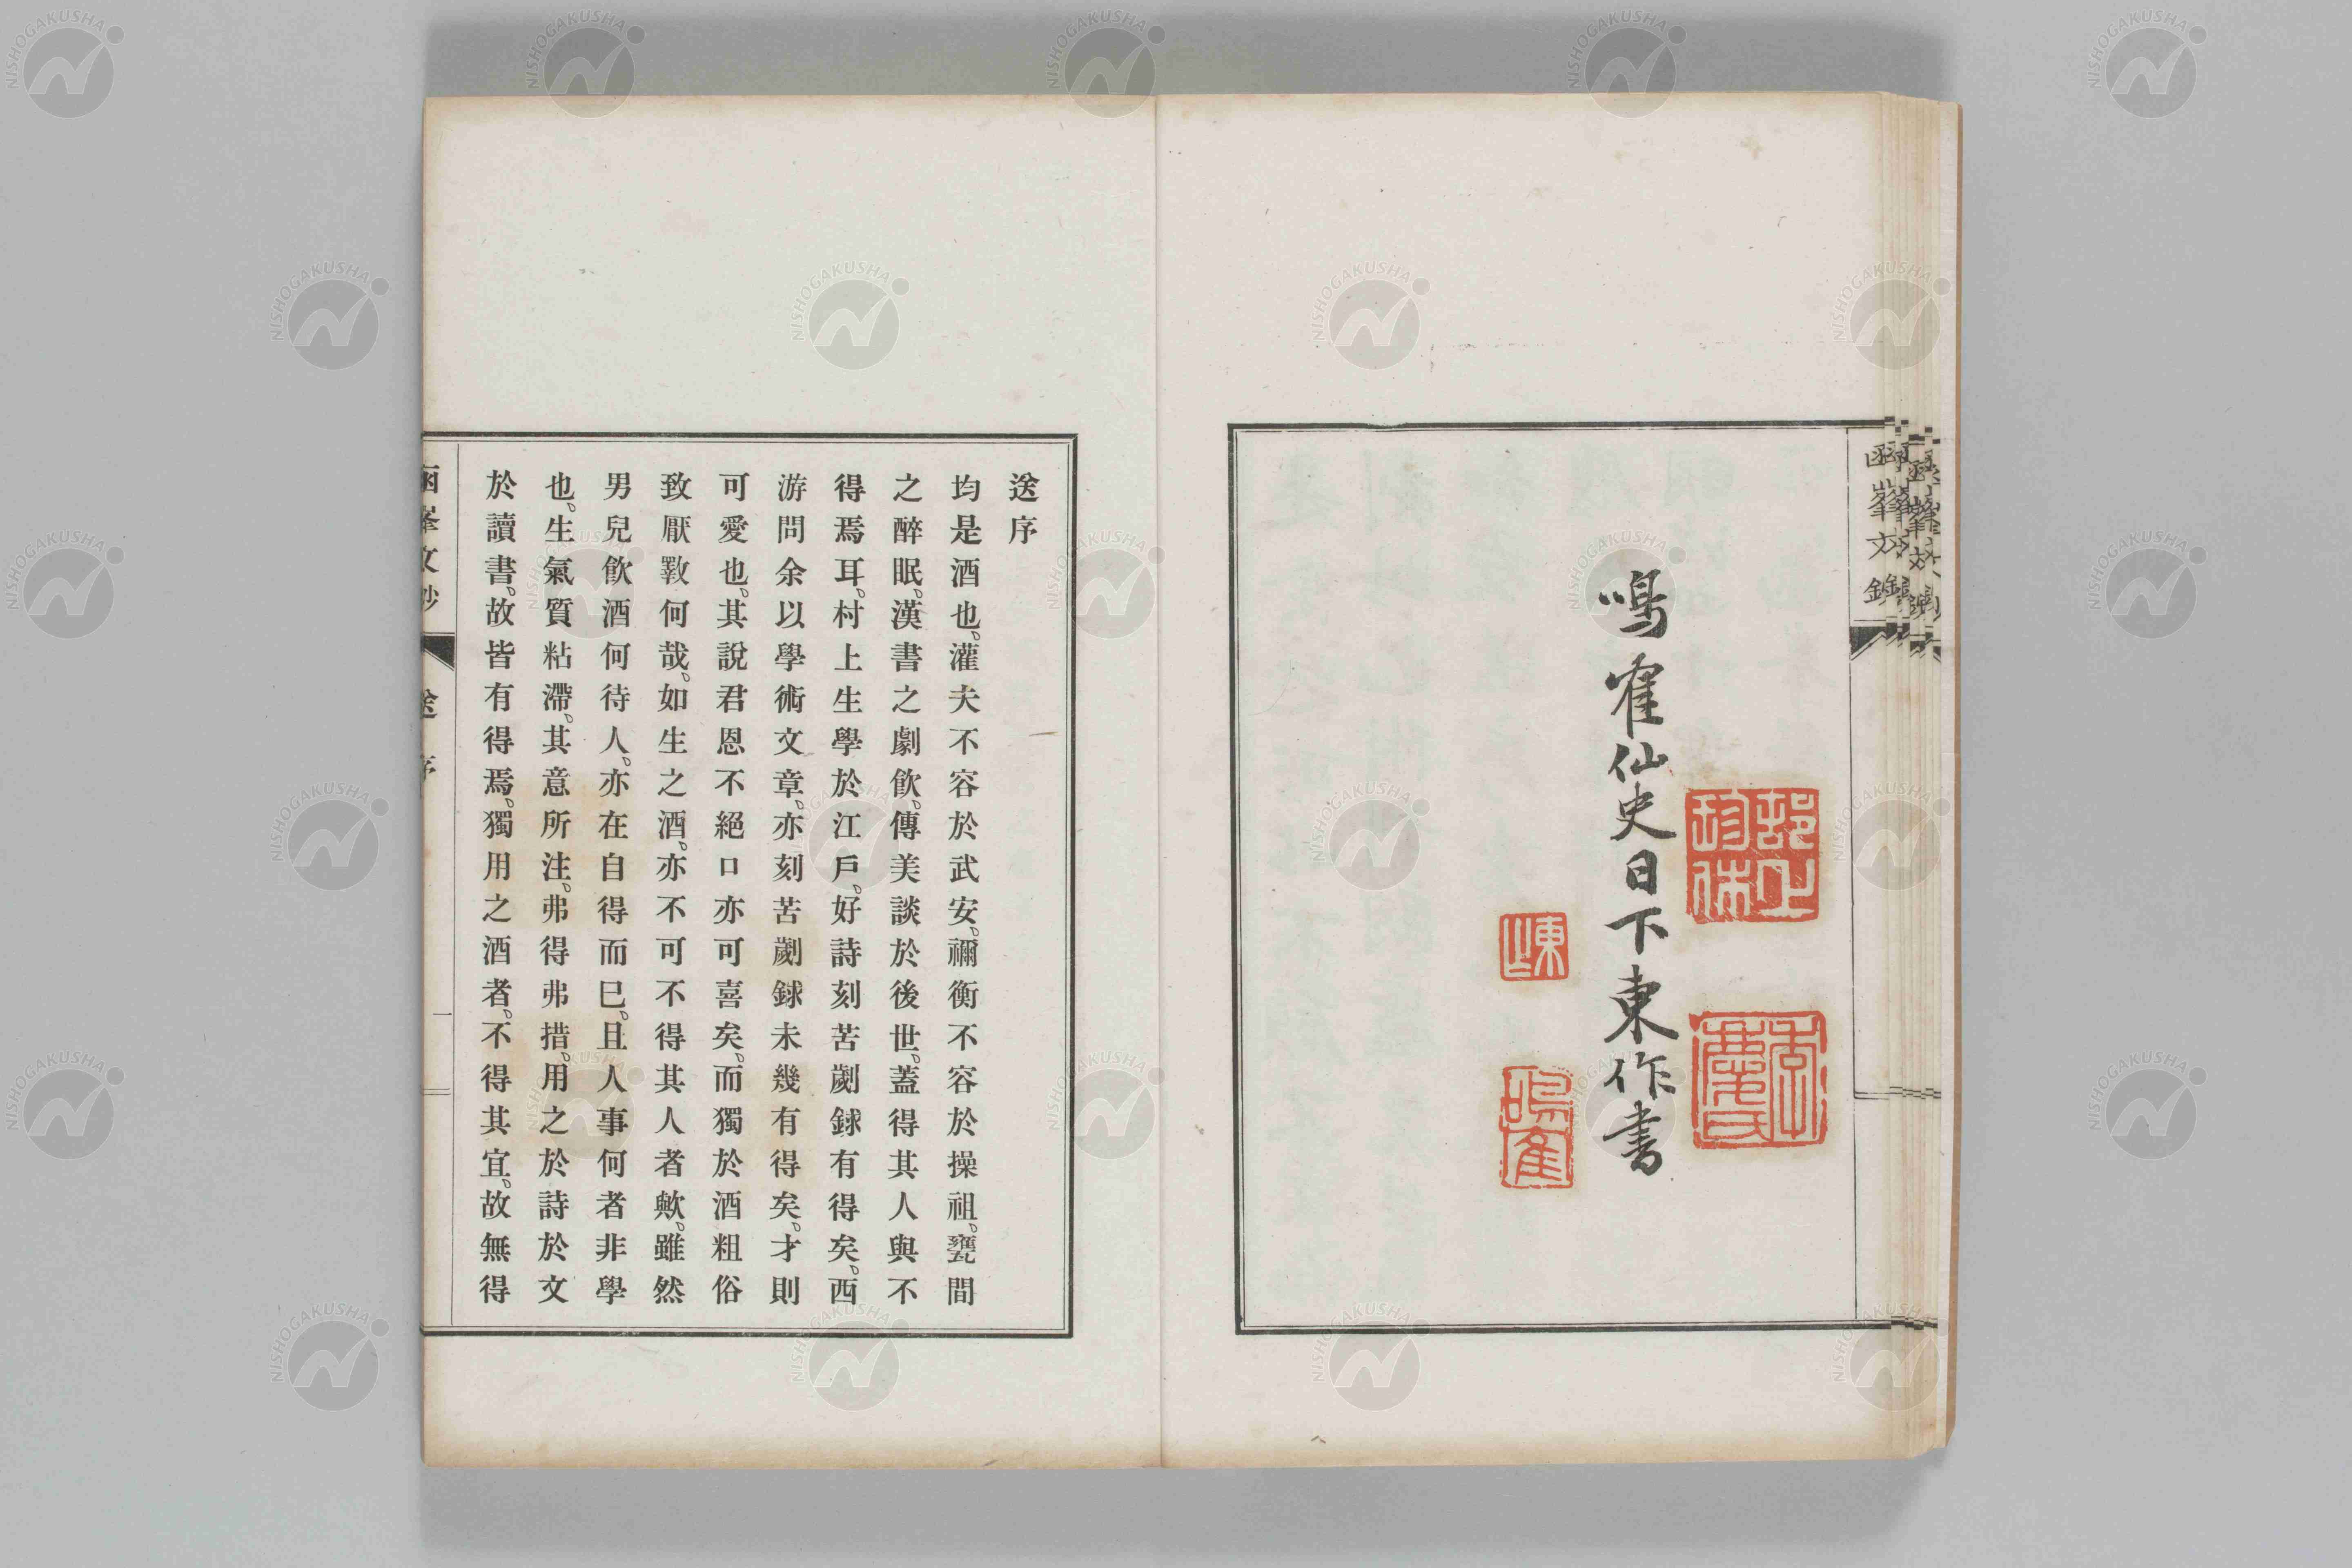 函峯文鈔
鳴隺仙史日下東作書
東作
鳴隺
送序
均是酒也。灌夫不容於武安。禰衡不容於操祖。甕間
之醉眠。漢書之劇飲。傳美談於後世。蓋得其人與不
得焉耳。村上生學於江戶。好詩刻苦劌鉥有得矣。西
游問余以學術文章。亦刻苦劌鉥未幾有得矣。才則
可愛也。其說君恩不絕口亦可喜矣。而獨於酒粗俗
致厭斁何哉。如生之酒。亦不可不得其人者歟。雖然
男兒飲酒何待人。亦在自得而已。且人事何者非學
也。生氣質粘滯。其意所注。弗得弗措。用之於詩於文
於讀書。故皆有得焉。獨用之酒者。不得其宜。故無得
函峯文鈔 送序 一
NISHOGAKUSHA